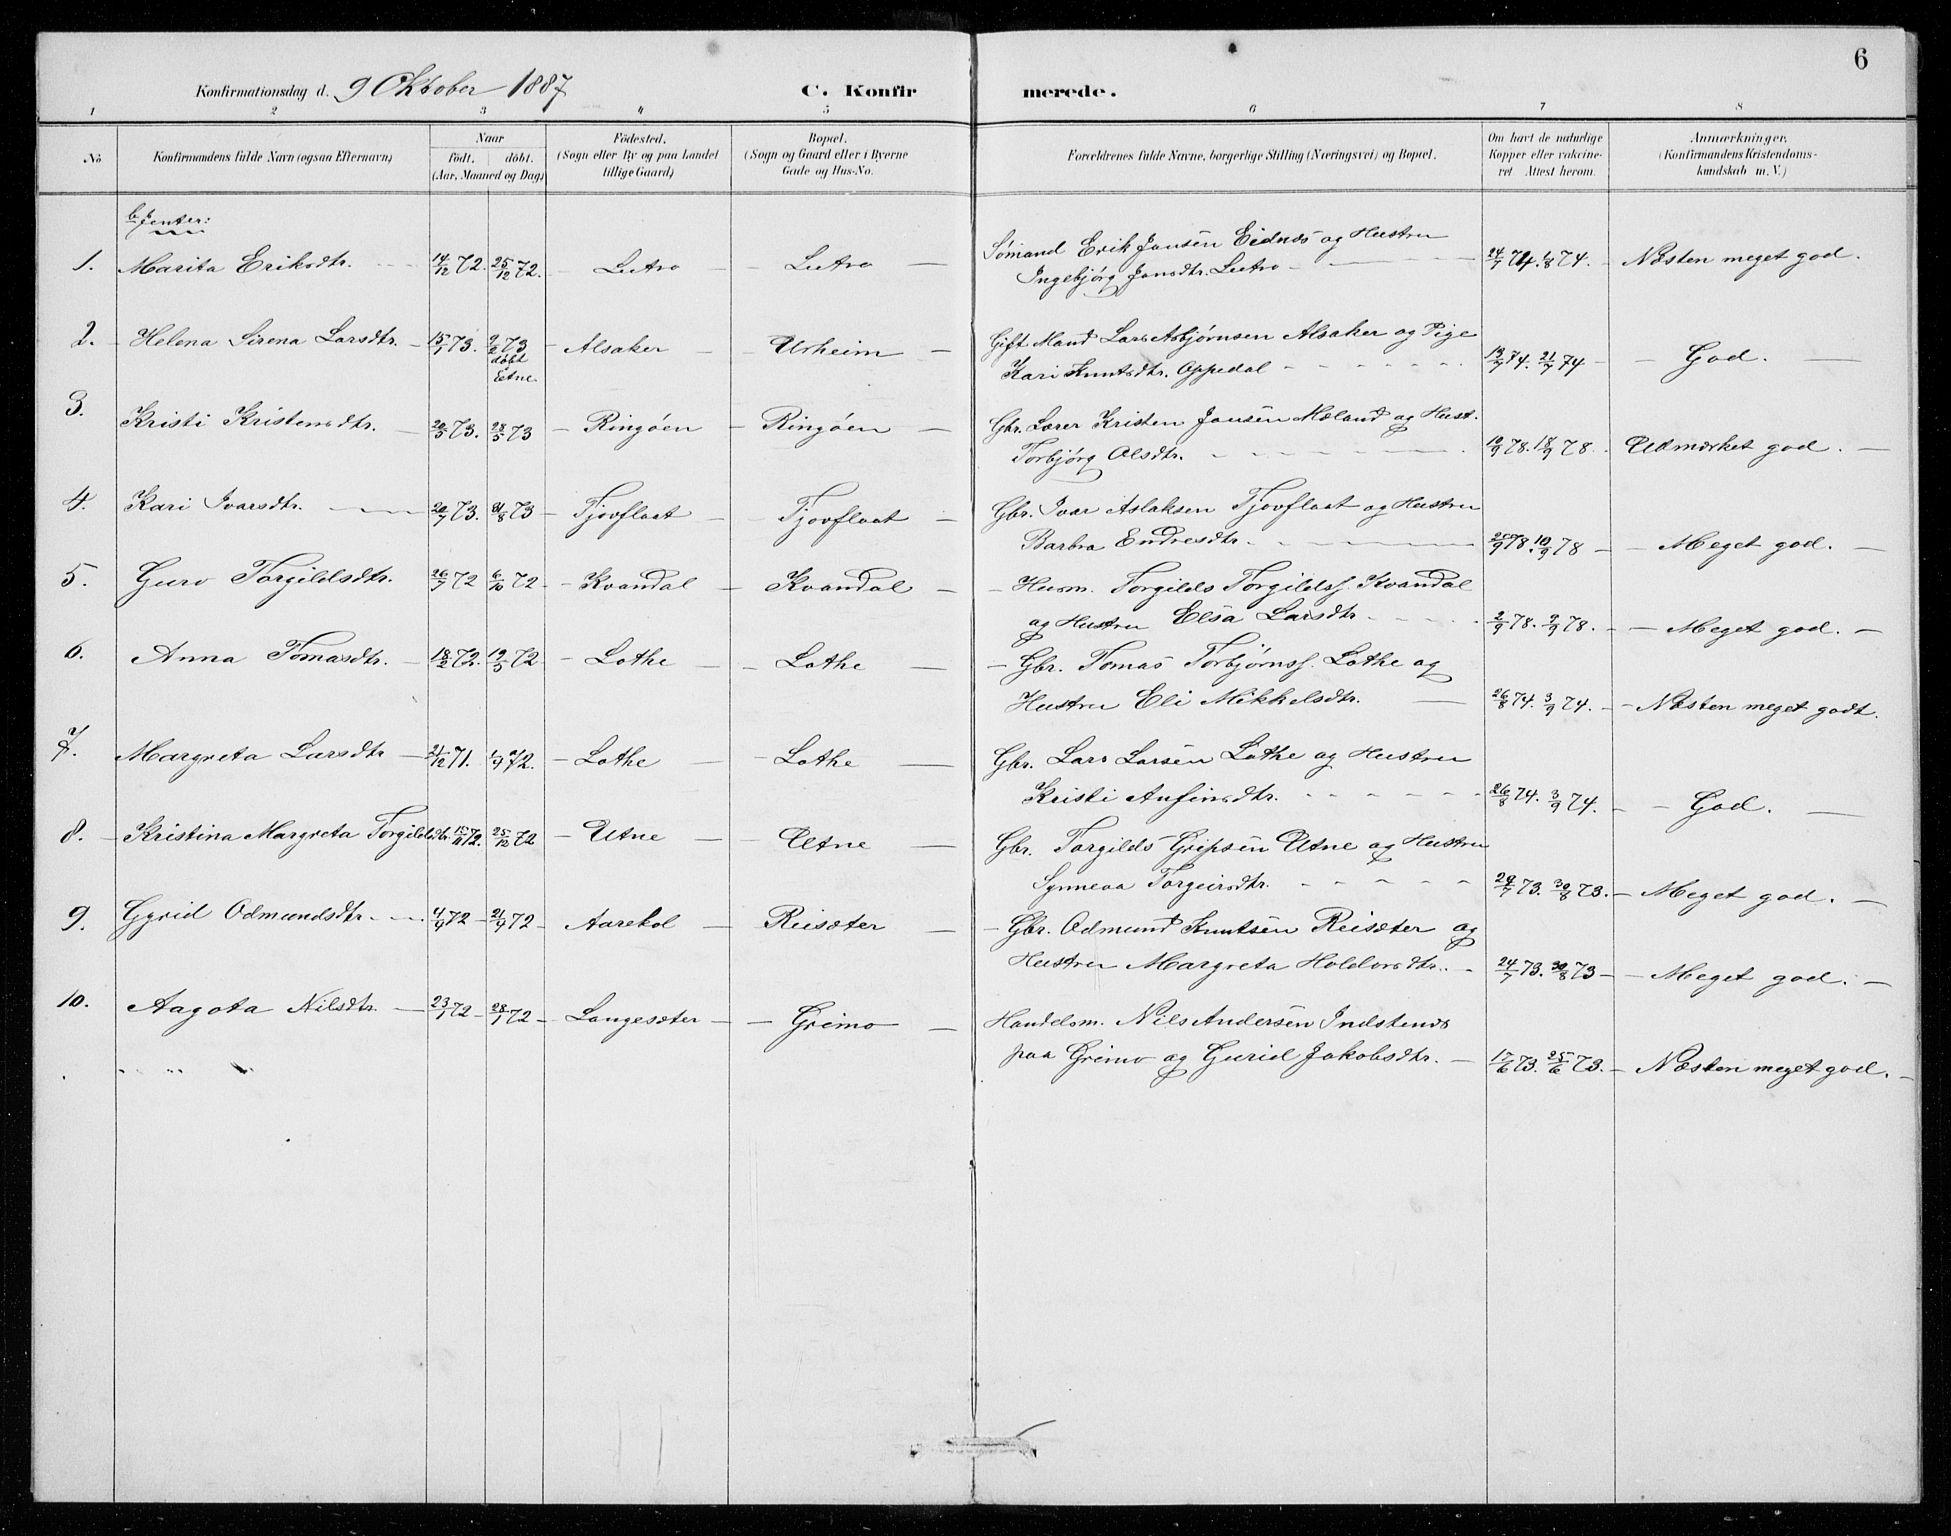 6
Konfirmationsdag d. 9 Oktober 1887 C. Konfirmerede.
1 2 3 4 5 6 7 8
No Konfirmandens fulde Navn (ogsaa Efternavn) Naar Födested. Bopæl. Forældrenes fulde Navne, borgerlige Stilling (Næringsvei) og Bopæl. Om havt de naturlige Anmærkninger.
födt. döbt. (Sogn eller By og paa Landet (Sogn og Gaard eller i Byerne Kopper eller vakcine- (Konfirmandens Kristendoms-
(Aar, Maaned og Dag) tillige Gaard) Gade og Hus-No. ret Attest herom. kundskab m. V.)
b. Jenter:
1. Marita Eriksdtr. 14/12 72. 25/12 72. Lutro Lutro Sømand Erik Jansen Eidnes og Hustru
Ingebjørg Jonsdtr. Lutro 24/7 74. 1/8 74. Næsten meget god.
2. Helena Sirena Larsdtr. 15/1 73. 9/2 73 Alsaker Urheim Gift Mand Lars Asbjørnsen Alsaker og Pige
döbt
Etne
Kari Knutsdtr. Oppedal 13/7 74. 21/7 74 God.
3. Kristi Kristensdtr. 20/5 73. 28/5 73 Ringøen Ringøen Gbr. Lærer Kristen Jansen Mæland og Hust.
Torbjørg Olsdtr. 10/9 78. 18/9 78. Udmærket god.
4. Kari Ivarsdtr. 20/7 73. 31/8 73 Tjovflaat Tjovflaat Gbr. Ivar Aslaksen Tjovflaat og Hustru
Barbra Endresdtr. 78. 10/9 78 Meget god.
5. Guro Torgildsdtr. 26/7 72 6/10 72 Kvandal Kvandal Husm. Torgilds Torgildss. Kvandal
og Hustru Elsa Larsdtr. 2/9 78. 9/9 78. Meget god.
6. Anna Tomasdtr. 18/2 72. 19/5 72 Lothe Lothe Gbr. Tomas Torbjørnss. Lothe og
Hustru Eli Mikkelsdtr. 26/8 74. 3/9 74. Næsten meget godt.
7. Margreta Larsdtr 21/12 71. 72. Lothe Lothe Gbr. Lars Larsen Lothe og Hustru
Kristi Anfinsdtr. 26/8 74. 3/9 74. God.
8. Kristina Margreta Torgildsdtr. 15/11 72. 25/12 72 Utne Utne Gbr. Torgilds Gripsen Utne og Hustru
Synneva Torgeirsdtr. 24/7 73. 30/8 73. Meget god.
9. Gyrid Odmundsdtr. 4/9 72 21/9 72 Aarekol Reisæter Gbr. Odmund Knutsen Reisæter og
Hustru Margreta Haldorsdtr. 24/7 73. 30/8 73 Meget god.
10. Aagota Nilsdtr. 23/1 72 28/1 72 Langesæter Grimo Handelsm. Nils Andersen Indstenes
paa Grimo og Gurid Jakobsdtr. 17/6 73. 25/6 73. Næsten meget god.